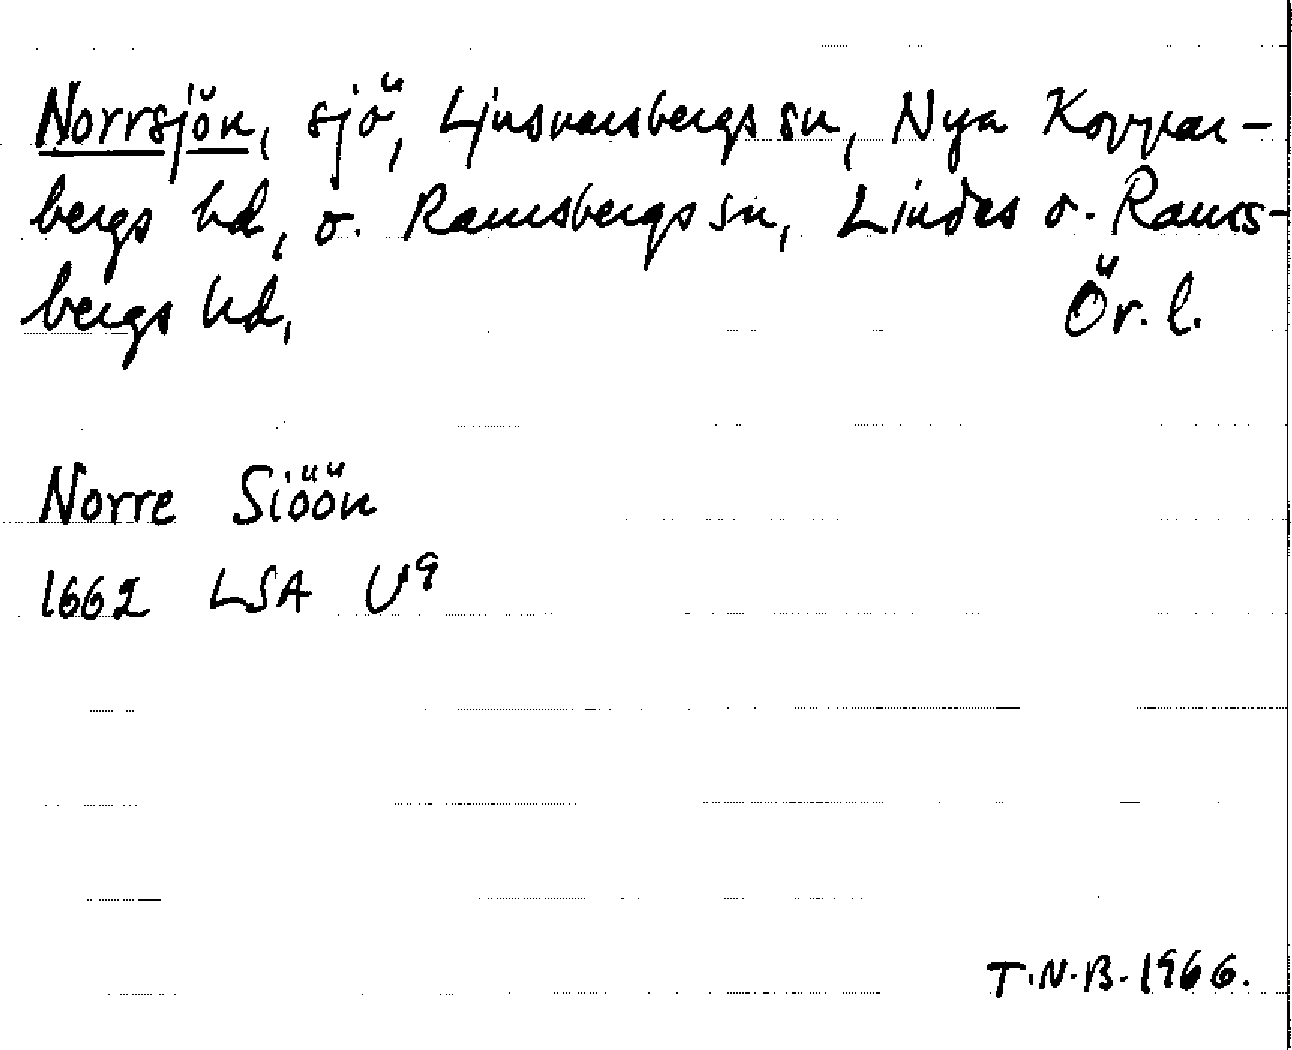 Norrsjön, sjö, Ljusnarsbergs sn, Nya Koppar-
bergs hd, o. Ramsbergs sn, Lindes o. Rams-
bergs hd,
Ör. l.
Norre Siöön
1662 LSA U9
T.N.B. 1966.